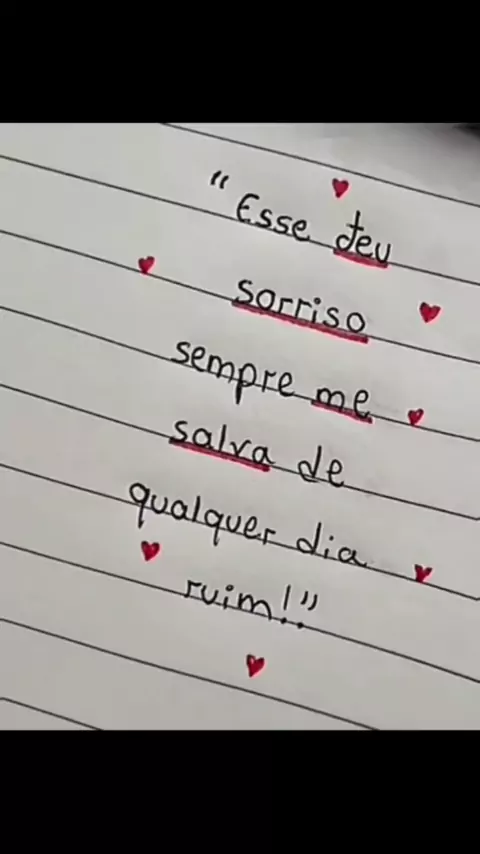 "Esse teu
sorriso
sempre me
salva de
qualquer dia
ruim!"